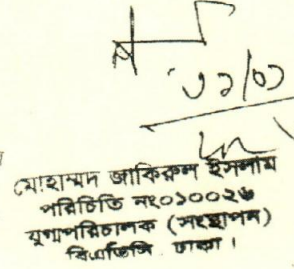 মোহাম্মদ জাকিরুল ইসলাম
পরিচিতি নং০১০০২৬
যুগ্মপরিচালক (সংস্থাপন)
বিএডিসি ঢাকা।